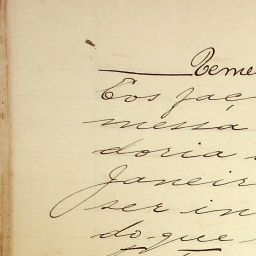 Teme
Eos faç
messa
doria
Janeir
ser in
do que